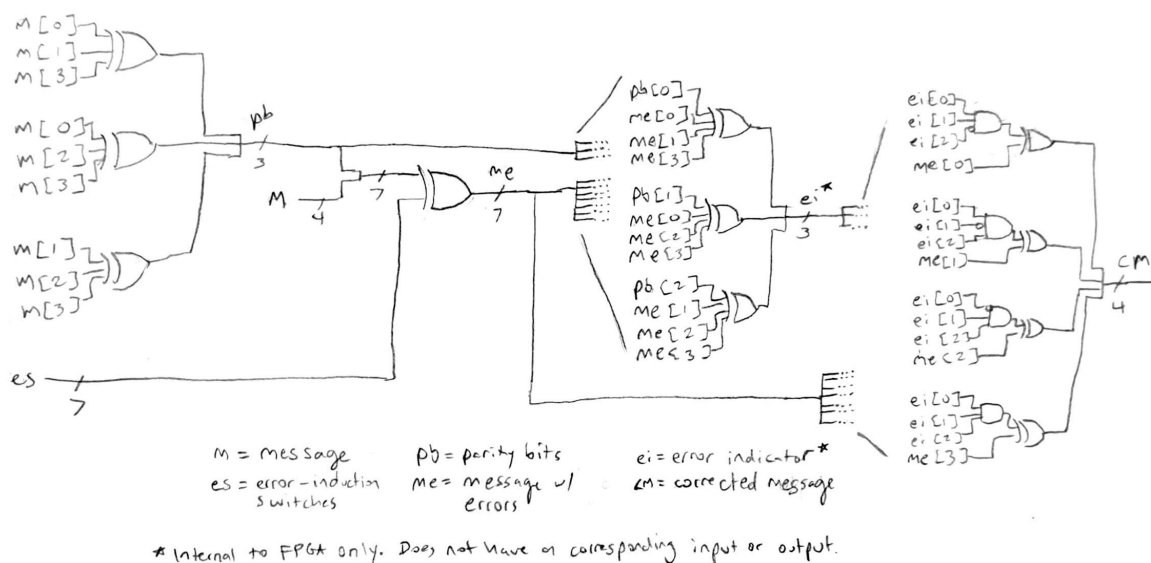 m[0]
m[1]
m[3]
m[0]
m[2]
m[3]
m[1]
m[2]
m[3]
pb
3
M
4
7
me
7
es
7
pb[0]
me[0]
me[1]
me[3]
pb[1]
me[0]
me[2]
me[3]
pb[2]
me[1]
me[2]
me[3]
ei*
3
ei[0]
ei[1]
ei[2]
me[0]
ei[0]
ei[1]
ei[2]
me[1]
ei[0]
ei[1]
ei[2]
me[2]
ei[0]
ei[1]
ei[2]
me[3]
cm
4
m = message
es = error-induction
switches
pb = parity bits
me = message w/
errors
ei = error indicator*
cm = corrected message
* Internal to FPGA only. Does not have a corresponding input or output.